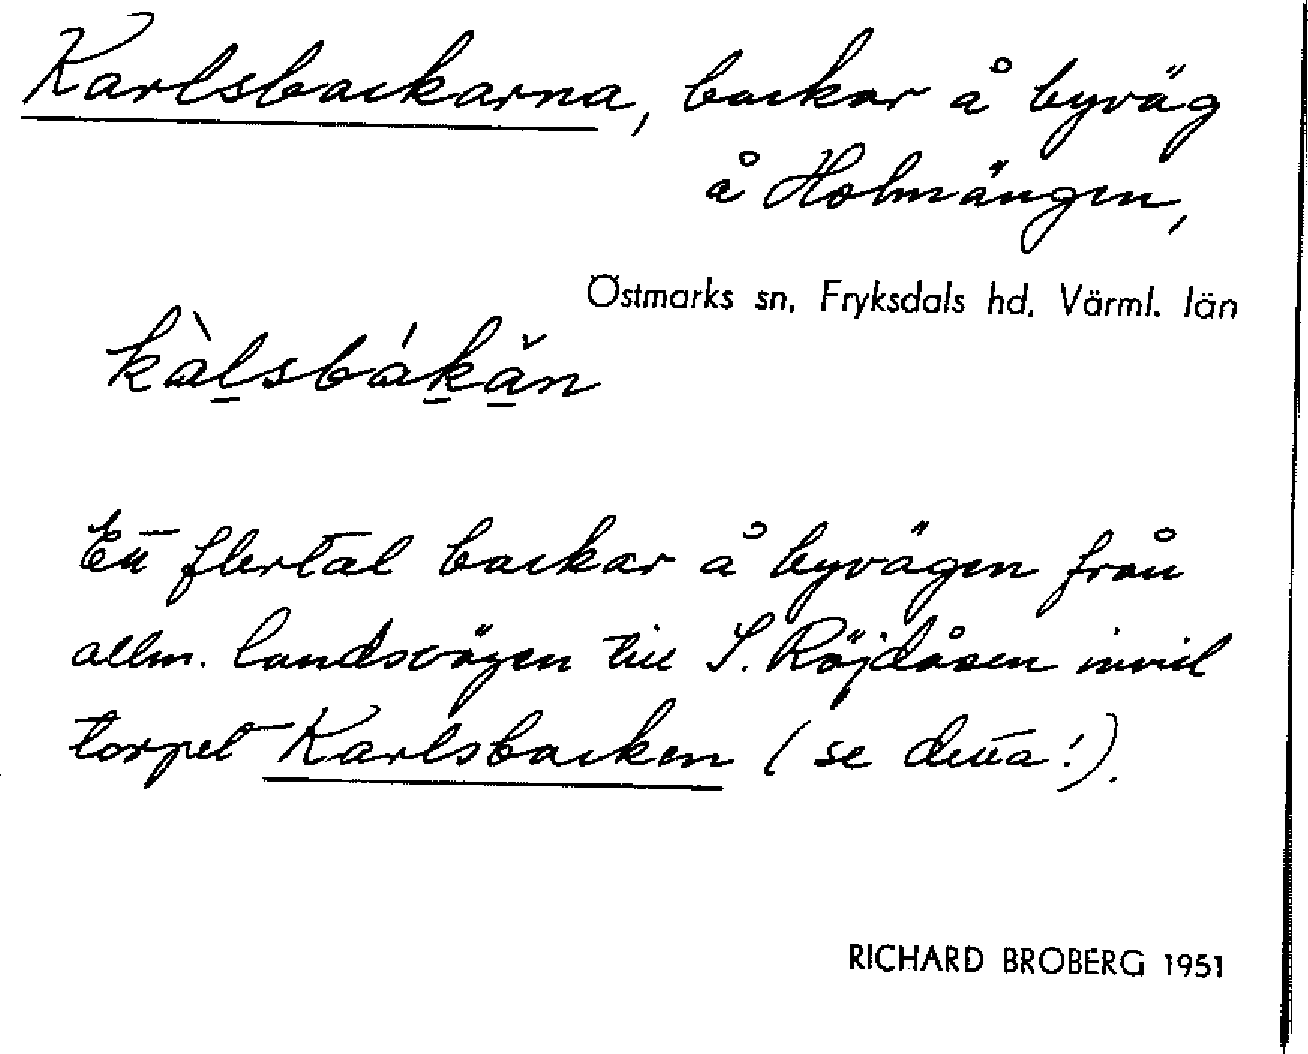 Karlsbackarna, backar å byväg
å Holmängen,
Östmarks sn, Fryksdals hd, Värml. län
kàlsbákăn
Ett flertal backar å byvägen från
allm. landsvägen till S. Röjdåsen invid
torpet Karlsbacken (se detta!).
RICHARD BROBERG 1951